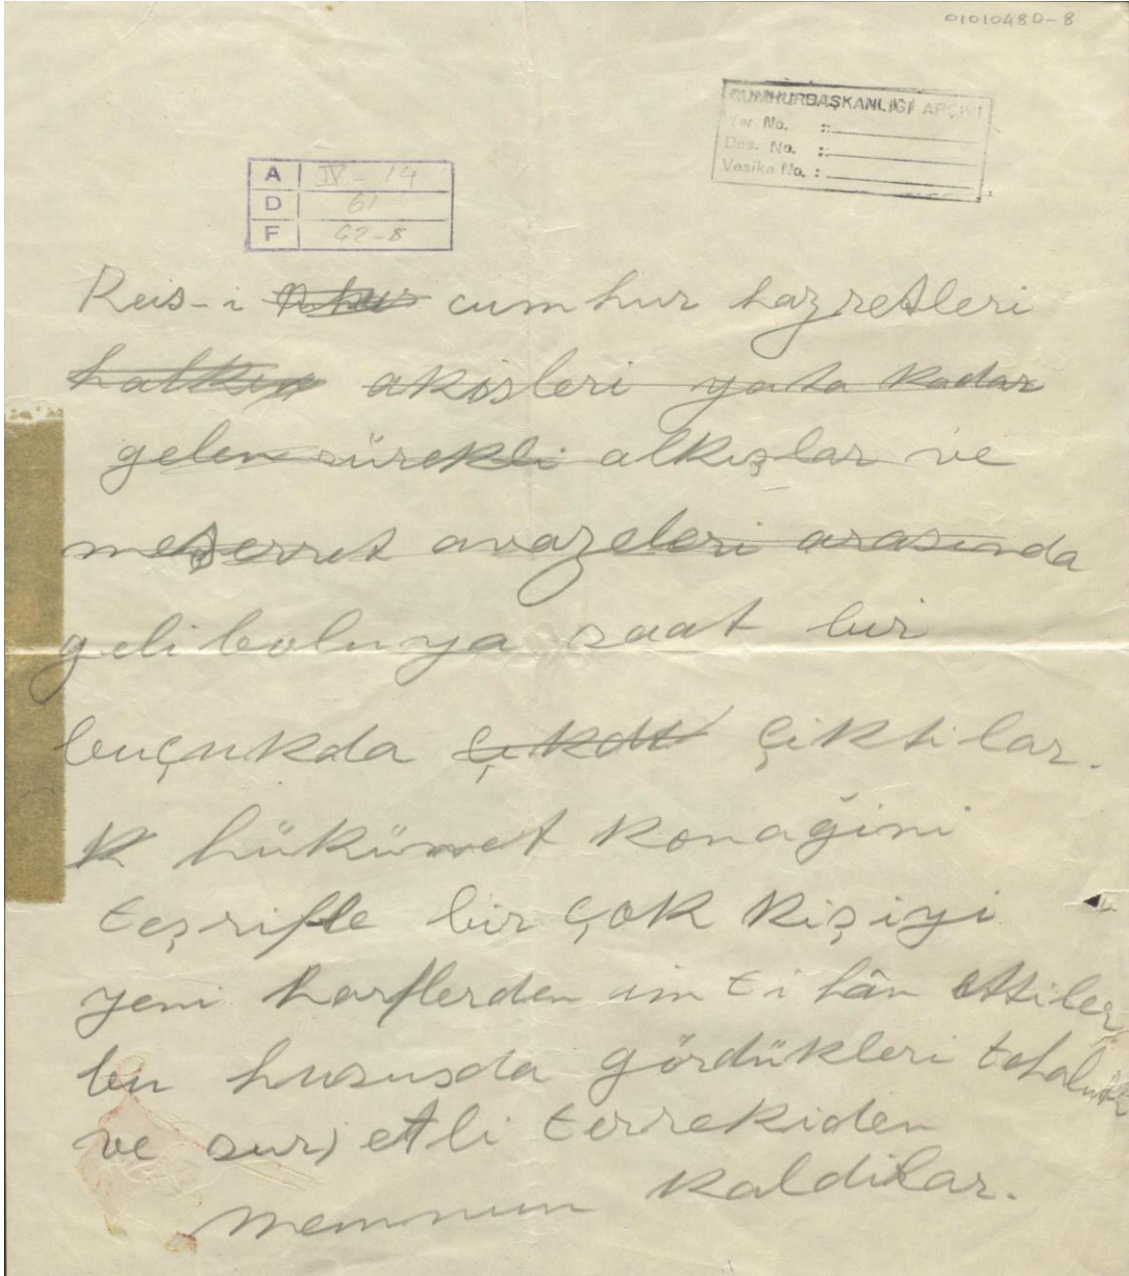 01010480-8
CUMHURBAŞKANLIĞI ARŞİVİ
Yer No. :
Dos. No. :
Vesika No. :
A IV - 14
D 61
F 42-8
Reis-i cumhur hazretleri
halkın akisleri yata kadar
gelen sürekli alkışlar ve
meserret avazeleri arasında
geliboluya saat bir
buçukda çıkdı çiktilar.
K hükümet konağini
teşrifle bir çok kişiyi
yeni harflerden imtihân ettiler
bu hususda gördükleri tehalük
ve sur'etli terrekiden
memnun kaldilar.